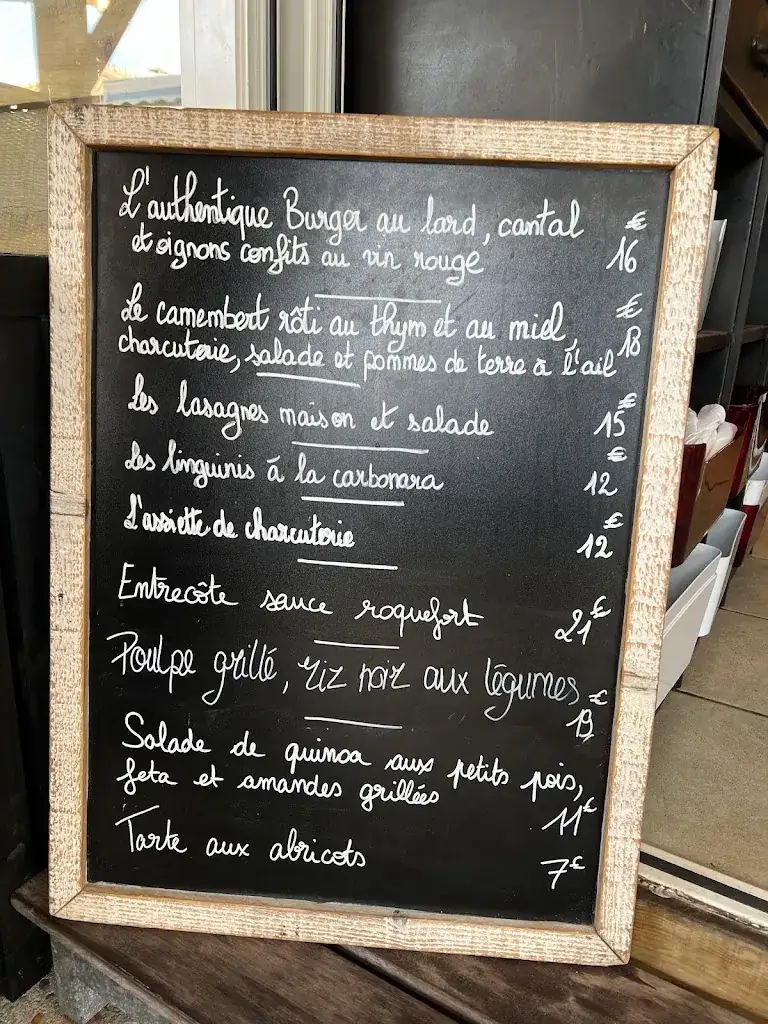 L'authentique Burger au lard, cantal €
et oignons confits au vin rouge 16
Le camembert rôti au thym et au miel, €
charcuterie, salade et pommes de terre à l'ail 18
Les lasagnes maison et salade 15 €
Les linguinis à la carbonara 12 €
L'assiette de charcuterie 12 €
Entrecôte sauce roquefort 21 €
Poulpe grillé, riz noir aux légumes €
Salade de quinoa aux petits pois,
feta et amandes grillées 11 €
Tarte aux abricots 7 €